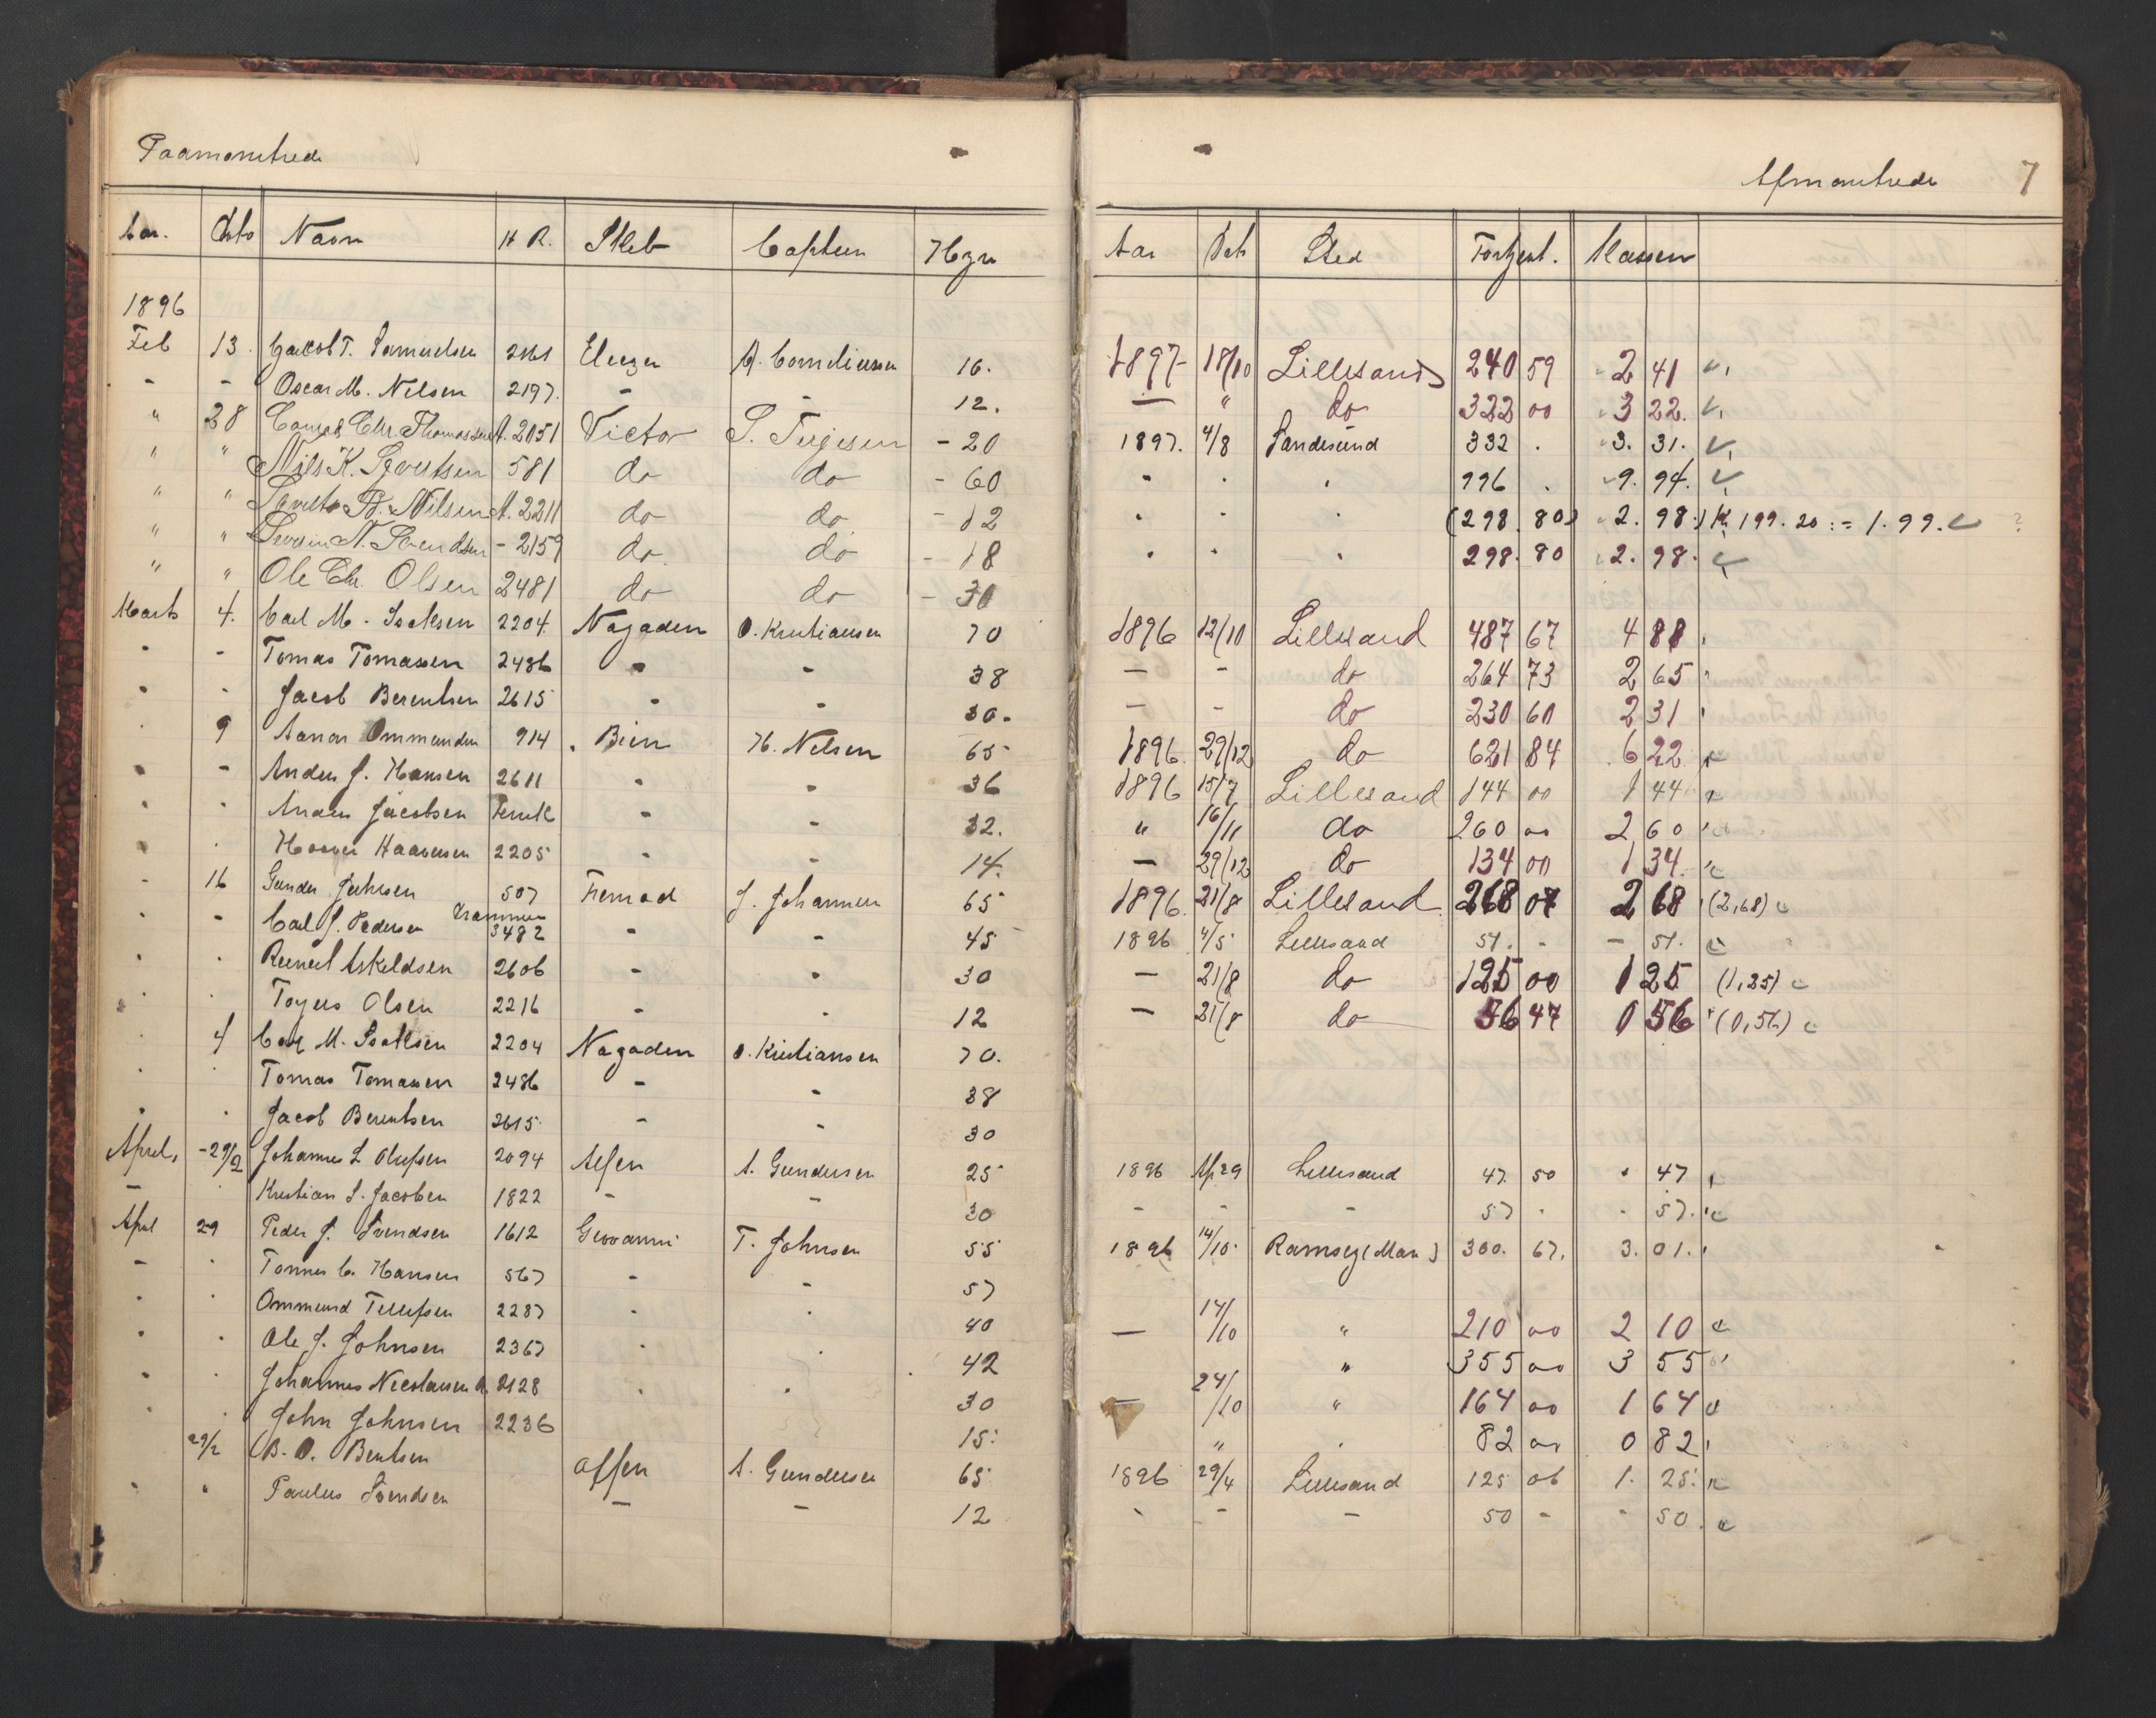 Paamønstrede
Afmønstrede 7
Aar. Dato Navn H R. Skib Captein Hyre
Aar Dat Sted Fortjent. Kassen
1896
Feb 13. Jacob T. Samuelsen 2161 Eliezer A. Corneliussen 16. 1897 18/10 Lillesand 240 59 2 41
- - Oscar M. Nilsen 2197. - - 12. — " do 322 00 3 22.
" 28 Chr. Thomassen A. 2051 Victor S. Terjesen - 20 1897. 4/8 Sandesund 332 . 3. 31.
" " Nils K. Syvertsen 581 do do - 60 " . . 996 . 9. 94.
" " B. Nilsen A. 2211 do do - 12 " - . (298. 80) 2. 98.) K 199. 20 := 1. 99. ?
" " Severin N. Svendsen - 2159 do do - 18 " . . 298. 80 2. 98.
" " Ole Chr. Olsen 2481 do do - 30
Marts 4. Carl M. Isaksen 2204 Nøgaden O. Kristiansen 70 1896 12/10 Lillesand 487 67 4 88
" - Tomas Tomassen 2486 - - 38 — - do 264 73 2 65
" - Jacob Berentsen 2615 - - 30. — - do 230 60 2 31
. 9 Aanon Ommundsen 914 . Bien H. Nilsen 65 1896. 29/12 do 621 84 6 22
" - Anders J. Hansen 2611 - - 36 1896 15/7 Lillesand 144 00 1 44
" - Anders Jacobsen - - 32. " 16/11 do 260 00 2 60
" . Haavesen 2205 - - 14. — 29/12 do 134 00 1 34.
- 16 Gunder Juhlsen 507 Fremad J. Johannesen 65 1896. 21/8 Lillesand 268 07 2 68 (2,68)
. - Carl J. Pedersen Drammen 3482 - - 45 1896 4/5 Lillesand 51. - - 51.
. . Askeldsen 2606 - - 30 — 21/8 do 125 00 1 25 (1,25)
. . Olsen 2216 - - 12 — 21/8 do 56 47 0 56 (0,56)
. 4 Carl M. Isaksen 2204 Nøgaden O. Kristiansen 70.
. . Tomas Tomassen 2486 - - 38
. . Jacob Berentsen 2615 - - 30
April, - 29/2 Johannes L Olufsen 2094 Alfen A. Gundersen 25 1896 Ap 29 Lillesand 47. 50 . 47
- . Kristian S. Jacobsen 1822 - - 30 - - - 57 . - 57.
April 29 Peder J. Svendsen 1612 Giovanni T. Johnsen 55 1896 14/10. Ramsey (Man) 300. 67. 3. 01.
- . Tønnes C. Hansen 567 - - 57
. . Ommund Tellefsen 2287 . . 40 — 14/10 " 210 00 2 10
. . Ole J. Johnsen 2367 . . 42 " 355 00 3 55
. . Johannes Nicolaisen A. 2128 . . 30 — 24/10 " 164 00 1 64
. . John Johnsen 2236 15. " . 82 00 0 82
29/2 B. O. Bentsen Alfen A. Gundersen 65 1896 29/4 Lillesand 125 06 1. 25.
. . Paulus Svendsen — - 12 - - - 50 - - 50.